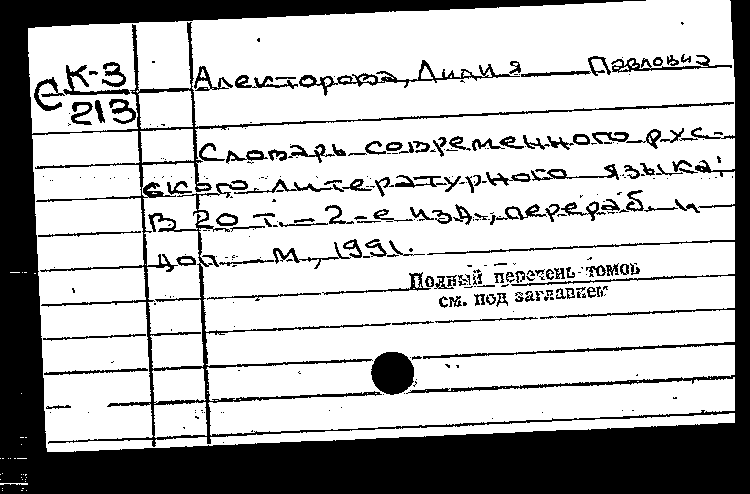 С К-3
213
Алекторова, Лидия Павловна
Словарь современного рус-
ского литературного языка:
В 20 т. – 2-е изд., перераб. и
доп. – М., 1991.
Полный перечень томов
см. под заглавием